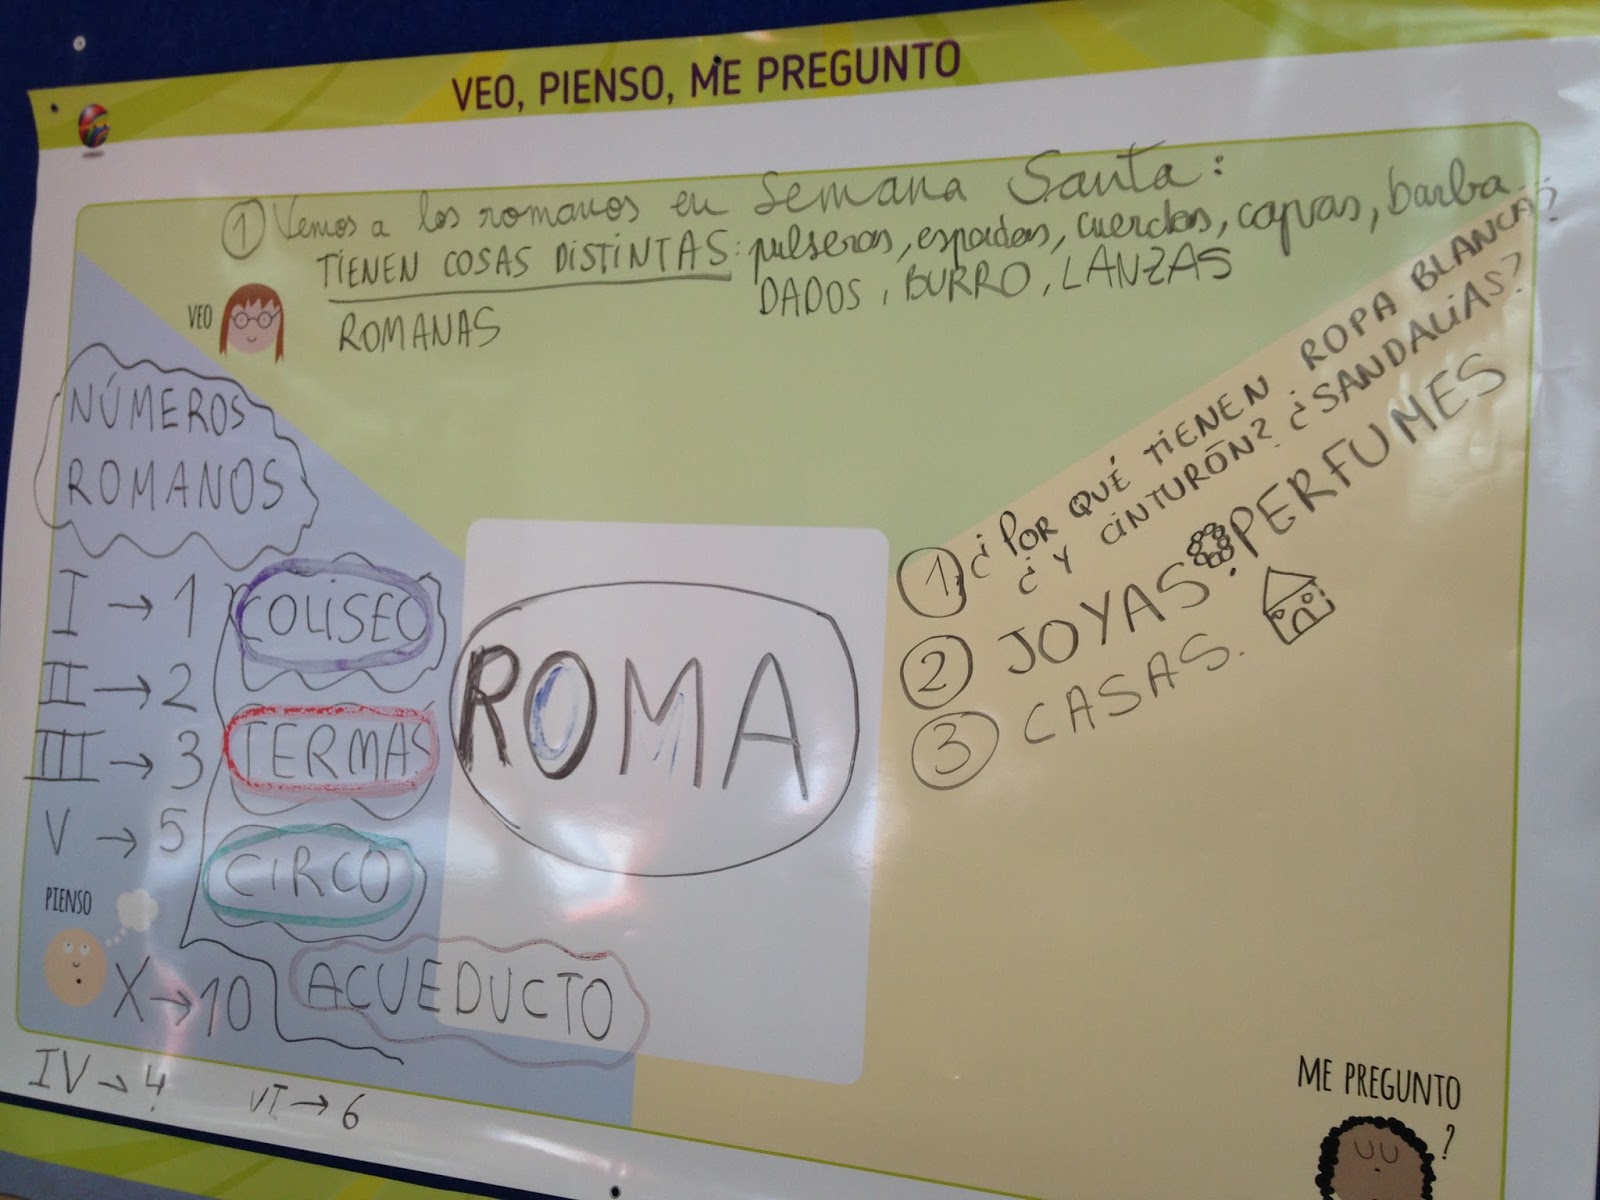 VEO, PIENSO, ME PREGUNTO
① Vemos a los romanos en Semana Santa:
TIENEN COSAS DISTINTAS: pulseras, espadas, cuerdas, capas, barba
DADOS, BURRO, LANZAS
ROMANAS
VEO
NÚMEROS
ROMANOS
I → 1
II → 2
III → 3
V → 5
PIENSO
X → 10
IV → 4
VI → 6
COLISEO
TERMAS
CIRCO
ACUEDUCTO
ROMA
① ¿POR QUÉ TIENEN ROPA BLANCA?
¿Y CINTURÓN? ¿SANDALIAS?
② JOYAS PERFUMES
③ CASAS.
ME PREGUNTO
?